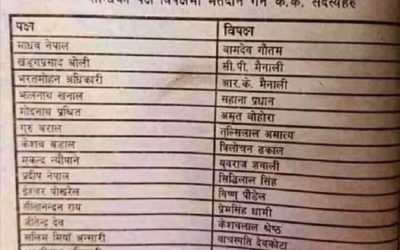 पक्ष विपक्षमा मतदान गर्ने के.क. सदस्यहरु
पक्ष विपक्ष
माधव नेपाल वामदेव गौतम
खड्गप्रसाद ओली सी.पी. मैनाली
भरतमोहन अधिकारी आर.के. मैनाली
झलनाथ खनाल सहाना प्रधान
मोदनाथ प्रश्रित अमृत बोहोरा
गुरु बराल तुल्सिलाल अमात्य
केशव बडाल त्रिलोचन ढकाल
मुकुन्द न्यौपाने युवराज ज्ञवाली
प्रदीप नेपाल सिद्धिलाल सिंह
ईश्वर पोखरेल विष्णु पौडेल
सीतानन्दन राय प्रेमसिंह धामी
जीतेन्द्र देव केशवलाल श्रेष्ठ
सलिम मियाँ अन्सारी वाचस्पति देवकोटा